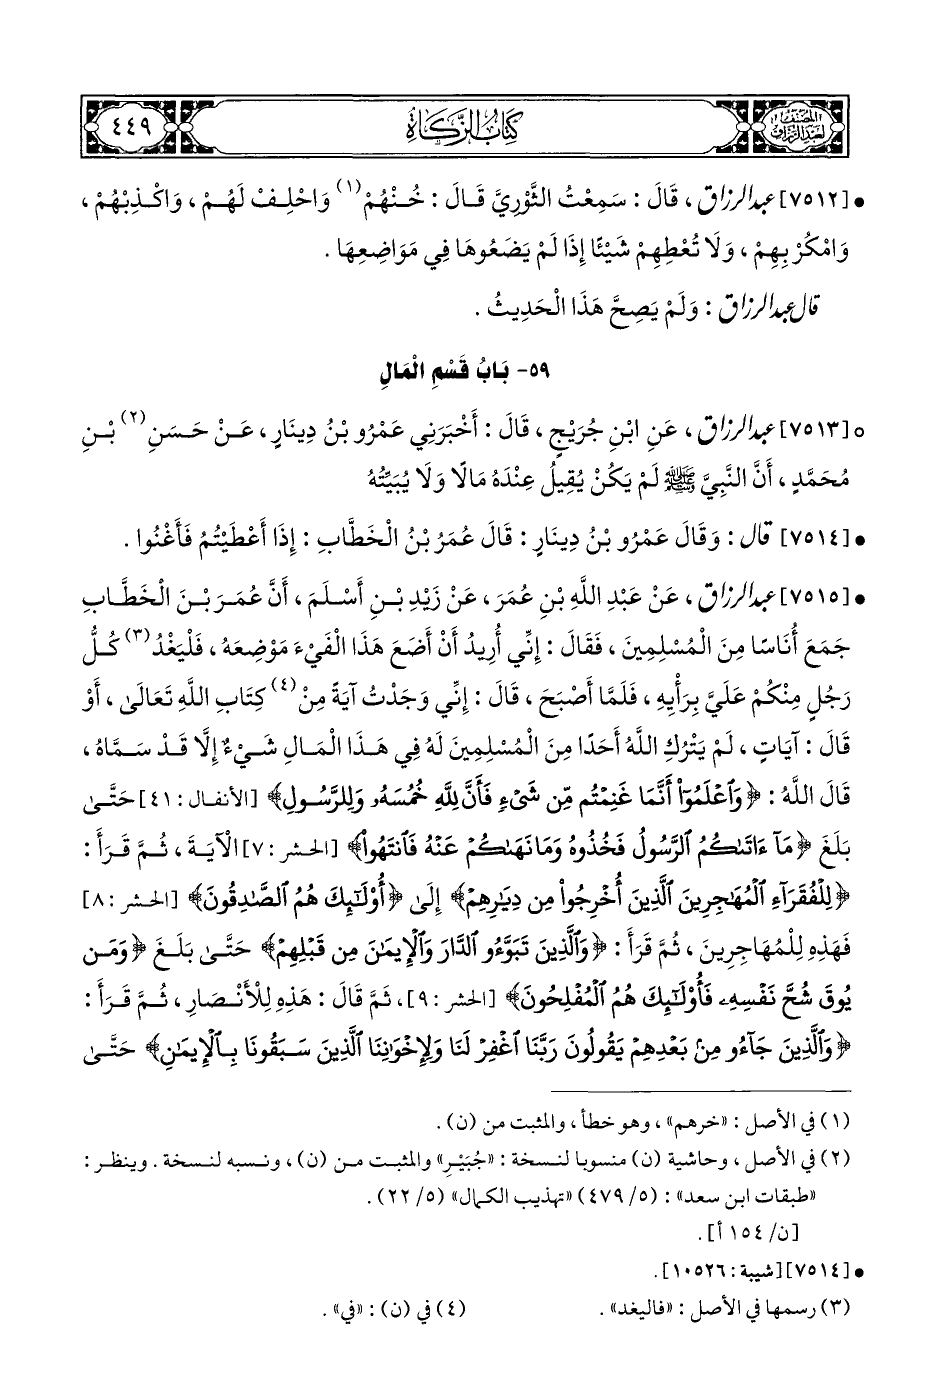 المصنف لعبد الرزاق
كتاب الزكاة
٤٤٩
• [٧٥١٢] عبد الرزاق ، قَالَ : سَمِعْتُ الثَّوْرِيَّ قَالَ : خُنْهُمْ (١) وَاحْلِفْ لَهُمْ ، وَاكْذِبْهُمْ ،
وَامْكُرْ بِهِمْ ، وَلَا تُعْطِهِمْ شَيْئًا إِذَا لَمْ يَضَعُوهَا فِي مَوَاضِعِهَا .
قال عبد الرزاق : وَلَمْ يَصِحَّ هَذَا الْحَدِيثُ .
٥٩- بَابُ قَسْمِ الْمَالِ
○ [٧٥١٣] عبد الرزاق ، عَنِ ابْنِ جُرَيْجٍ ، قَالَ : أَخْبَرَنِي عَمْرُو بْنُ دِينَارٍ ، عَنْ حَسَنِ (٢) بْنِ
مُحَمَّدٍ ، أَنَّ النَّبِيَّ ﷺ لَمْ يَكُنْ يُقِيلُ عِنْدَهُ مَالًا وَلَا يُبَيِّتُهُ
• [٧٥١٤] قال : وَقَالَ عَمْرُو بْنُ دِينَارٍ : قَالَ عُمَرُ بْنُ الْخَطَّابِ : إِذَا أَعْطَيْتُمْ فَأَغْنُوا .
• [٧٥١٥] عبد الرزاق ، عَنْ عَبْدِ اللَّهِ بْنِ عُمَرَ ، عَنْ زَيْدِ بْنِ أَسْلَمَ ، أَنَّ عُمَرَ بْنَ الْخَطَّابِ
جَمَعَ أُنَاسًا مِنَ الْمُسْلِمِينَ ، فَقَالَ : إِنِّي أُرِيدُ أَنْ أَضَعَ هَذَا الْفَيْءَ مَوْضِعَهُ ، فَلْيَغْدُ (٣) كُلُّ
رَجُلٍ مِنْكُمْ عَلَيَّ بِرَأْيِهِ ، فَلَمَّا أَصْبَحَ ، قَالَ : إِنِّي وَجَدْتُ آيَةً مِنْ (٤) كِتَابِ اللَّهِ تَعَالَى ، أَوْ
قَالَ : آيَاتٍ ، لَمْ يَتْرُكِ اللَّهُ أَحَدًا مِنَ الْمُسْلِمِينَ لَهُ فِي هَذَا الْمَالِ شَيْءٌ إِلَّا قَدْ سَمَّاهُ ،
قَالَ اللَّهُ : ﴿وَٱعْلَمُوٓا۟ أَنَّمَا غَنِمْتُم مِّن شَىْءٍ فَأَنَّ لِلَّهِ خُمُسَهُۥ وَلِلرَّسُولِ﴾ [الأنفال : ٤١] حَتَّى
بَلَغَ ﴿مَآ ءَاتَىٰكُمُ ٱلرَّسُولُ فَخُذُوهُ وَمَا نَهَىٰكُمْ عَنْهُ فَٱنتَهُوا۟﴾ [الحشر : ٧] الْآيَةَ ، ثُمَّ قَرَأَ :
﴿لِلْفُقَرَآءِ ٱلْمُهَـٰجِرِينَ ٱلَّذِينَ أُخْرِجُوا۟ مِن دِيَـٰرِهِمْ﴾ إِلَى ﴿أُو۟لَـٰٓئِكَ هُمُ ٱلصَّـٰدِقُونَ﴾ [الحشر : ٨]
فَهَذِهِ لِلْمُهَاجِرِينَ ، ثُمَّ قَرَأَ : ﴿وَٱلَّذِينَ تَبَوَّءُو ٱلدَّارَ وَٱلْإِيمَـٰنَ مِن قَبْلِهِمْ﴾ حَتَّى بَلَغَ ﴿وَمَن
يُوقَ شُحَّ نَفْسِهِۦ فَأُو۟لَـٰٓئِكَ هُمُ ٱلْمُفْلِحُونَ﴾ [الحشر : ٩]، ثُمَّ قَالَ : هَذِهِ لِلْأَنْصَارِ ، ثُمَّ قَرَأَ :
﴿وَٱلَّذِينَ جَآءُو مِنۢ بَعْدِهِمْ يَقُولُونَ رَبَّنَا ٱغْفِرْ لَنَا وَلِإِخْوَٰنِنَا ٱلَّذِينَ سَبَقُونَا بِٱلْإِيمَـٰنِ﴾ حَتَّى
(١) في الأصل : «خرهم» ، وهو خطأ ، والمثبت من (ن) .
(٢) في الأصل ، وحاشية (ن) منسوبا لنسخة : «جُبَيْرِ» والمثبت من (ن) ، ونسبه لنسخة . وينظر :
«طبقات ابن سعد» : (٥/ ٤٧٩) «تهذيب الكمال» (٥/ ٢٢) .
[ن/ ١٥٤ أ] .
• [٧٥١٤] [شيبة : ١٠٥٢٦] .
(٣) رسمها في الأصل : «فاليغد» . (٤) في (ن) : «في» .